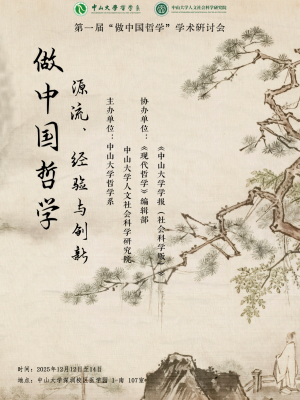 中山大學哲學系
中山大学人文社会科学研究院
第一届“做中国哲学”学术研讨会
做中国哲学
源流、经验与创新
主办单位：中山大学哲学系
中山大学人文社会科学研究院
协办单位：《现代哲学》编辑部
《中山大学学报（社会科学版）》
时间：2025年12月12日至14日
地点：中山大学深圳校区医学园 1-南 107室